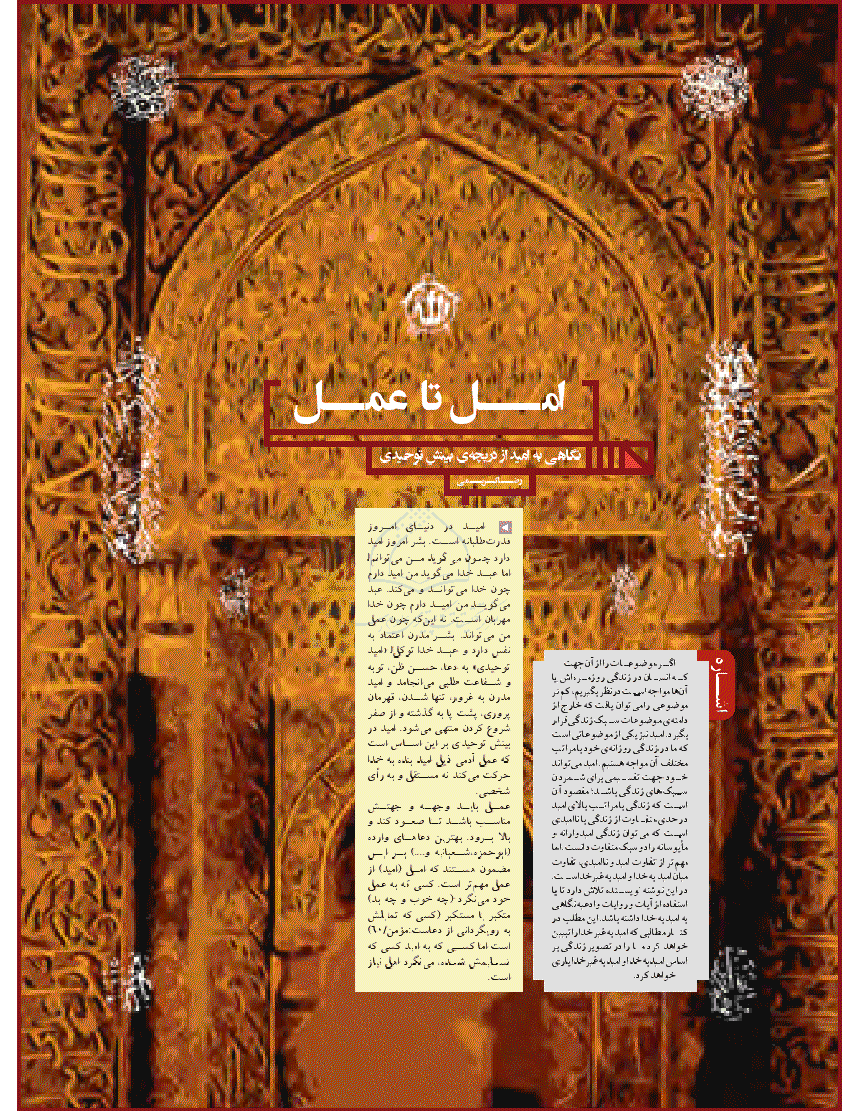 الله
امـــل تا عمـــل
نگاهی به امید از دریچه‌ی بینش توحیدی
اشـــاره
اگر موضوعات را از آن جهت
که انسان در زندگی روزمره‌اش با
آن‌ها مواجه است در نظر بگیریم، کم‌تر
موضوعی را می‌توان یافت که خارج از
دامنه‌ی موضوعات سبک زندگی قرار
بگیرد. امید نیز یکی از موضوعاتی است
که ما در زندگی روزانه‌ی خود با مراتب
مختلف آن مواجه هستیم. امید می‌تواند
خود جهت تقسیمی برای شمردن
سبک‌های زندگی باشد؛ مقصود آن
است که زندگی با مراتب بالای امید
در حدی متفاوت از زندگی با ناامیدی
است که می‌توان زندگی امیدوارانه و
مأیوسانه را دو سبک متفاوت دانست. اما
مهم‌تر از تفاوت امید و ناامیدی، تفاوت
میان امید به خدا و امید به غیر خداست.
در این نوشته نویسنده تلاش دارد تا با
استفاده از آیات و روایات و ادعیه نگاهی
به امید به خدا داشته باشد. این مطلب در
کنار مطالبی که امید به غیر خدا را تبیین
خواهد کرد ما را در تصویر زندگی بر
اساس امید به خدا و امید به غیر خدا یاری
خواهد کرد.
امیـد در دنیـای امـروز
قدرت‌طلبانه اسـت. بشر امروز امید
دارد چـون می‌گوید مـن می‌توانم
اما عبـد خدا می‌گوید من امید دارم
چون خدا می‌توانـد و می‌کند. عبد
می‌گویـد من امیـد دارم چون خدا
مهربان اسـت. نه این‌که چون عملِ
من می‌تواند. بشـر مدرن اعتماد به
نفس دارد و عبـد خدا توکل! «امید
توحیدی» به «دعا، حسـن ظن، توبه
و شـفاعت طلبی می‌انجامد و امید
مدرن به غرور، تنها شـدن، قهرمان
پروری، پشت پا به گذشته و از صفر
شروع کردن منتهی می‌شود. امید در
بینش توحیدی بر این اسـاس است
که عملِ آدمی ذیل امید بنده به خدا
حرکت می‌کند نه مسـتقل و به رأی
شخصی.
عمـل بایـد وجهـه و جهتـش
مناسـب باشـد تـا صعـود کند و
بالا بـرود. بهترین دعاهـای وارده
(ابوحمزه،شـعبانیه و...) بـر ایـن
مضمون هسـتند که امـل (امید) از
عمل مهم‌تر است. کسی که به عمل
خود می‌نگرد (چه خوب و چه بد)
متکبر یا مستکبر (کسی که تمایلش
به رویگردانی از دعاست:مؤمن/۶۰)
است اما کسـی که به امید کسی که
می‌نگرد اهل نیاز
است.